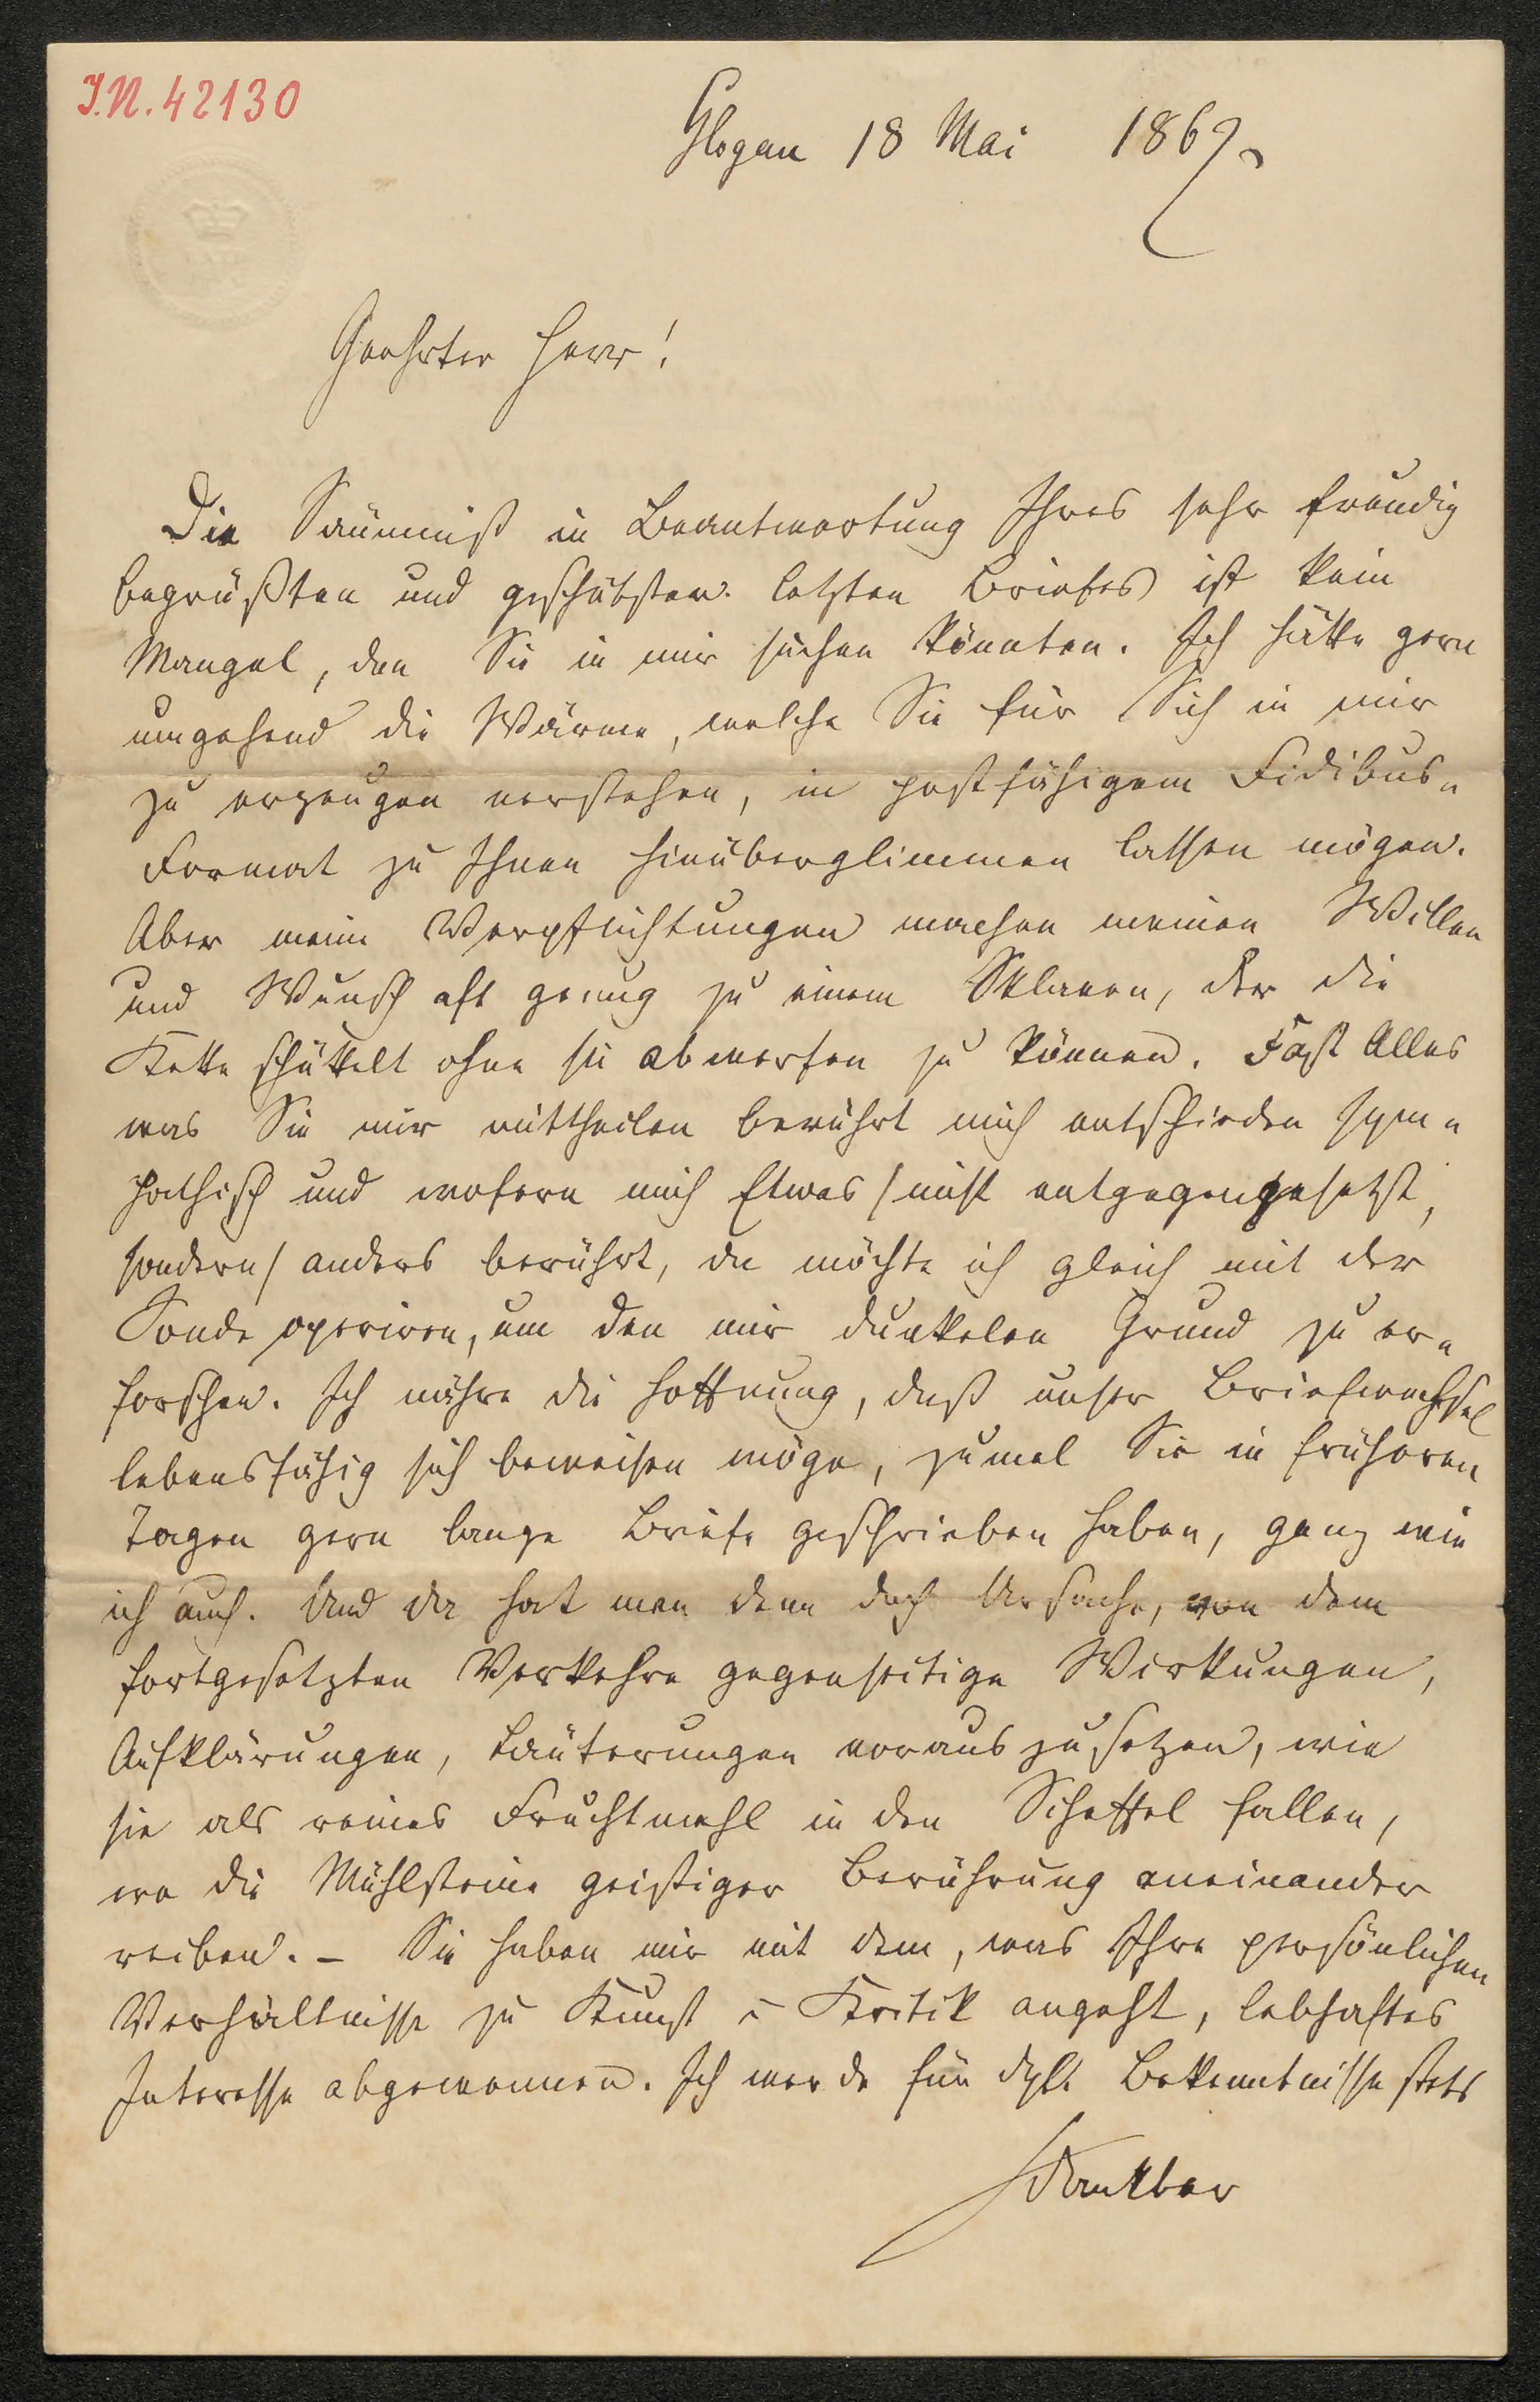 I.N. 42130
Glogau 18 Mai 1867.
Geehrter Herr!
Die Säumniß in Beantwortung Ihres sehr freudig
begrüßten und geschätzten letzten Briefes ist kein
Mangel, den Sie in mir suchen könnten. Ich hätte gern
umgehend die Wärme, welche Sie für Sich in mir
zu erzeugen verstehen, in postfähigem Fidibus-
Format zu Ihnen hinüberglimmen lassen mögen.
Aber meine Verpflichtungen machen meinen Willen
und Wunsch oft genug zu einem Sklaven, der die
Kette schüttelt ohne sie abwerfen zu können. Fast Alles
was Sie mir mittheilen berührt mich entschieden sym-
pathisch und wofern mich Etwas /nicht entgegengesetzt,
sondern/ anders berührt, da möchte ich gleich mit der
Sonde operiren, um den mir dunkelen Grund zu er-
forschen. Ich nähre die Hoffnung, daß unser Briefwechsel
lebensfähig sich beweisen möge, zumal Sie in früheren
Tagen gern lange Briefe geschrieben haben, ganz wie
ich auch. Und da hat man denn doch Ursache, von dem
fortgesetzten Verkehre gegenseitige Wirkungen,
Aufklärungen, Läuterungen vorauszusetzen, wie
sie als reines Fruchtmehl in den Scheffel fallen,
wo die Mühlsteine geistiger Berührung aneinander
reiben. – Sie haben mir mit dem, was Ihre persönlichen
Verhältnisse zu Kunst u Kritik angeht, lebhaftes
Interesse abgewonnen. Ich werde für Bekenntnisse stets
dankbar